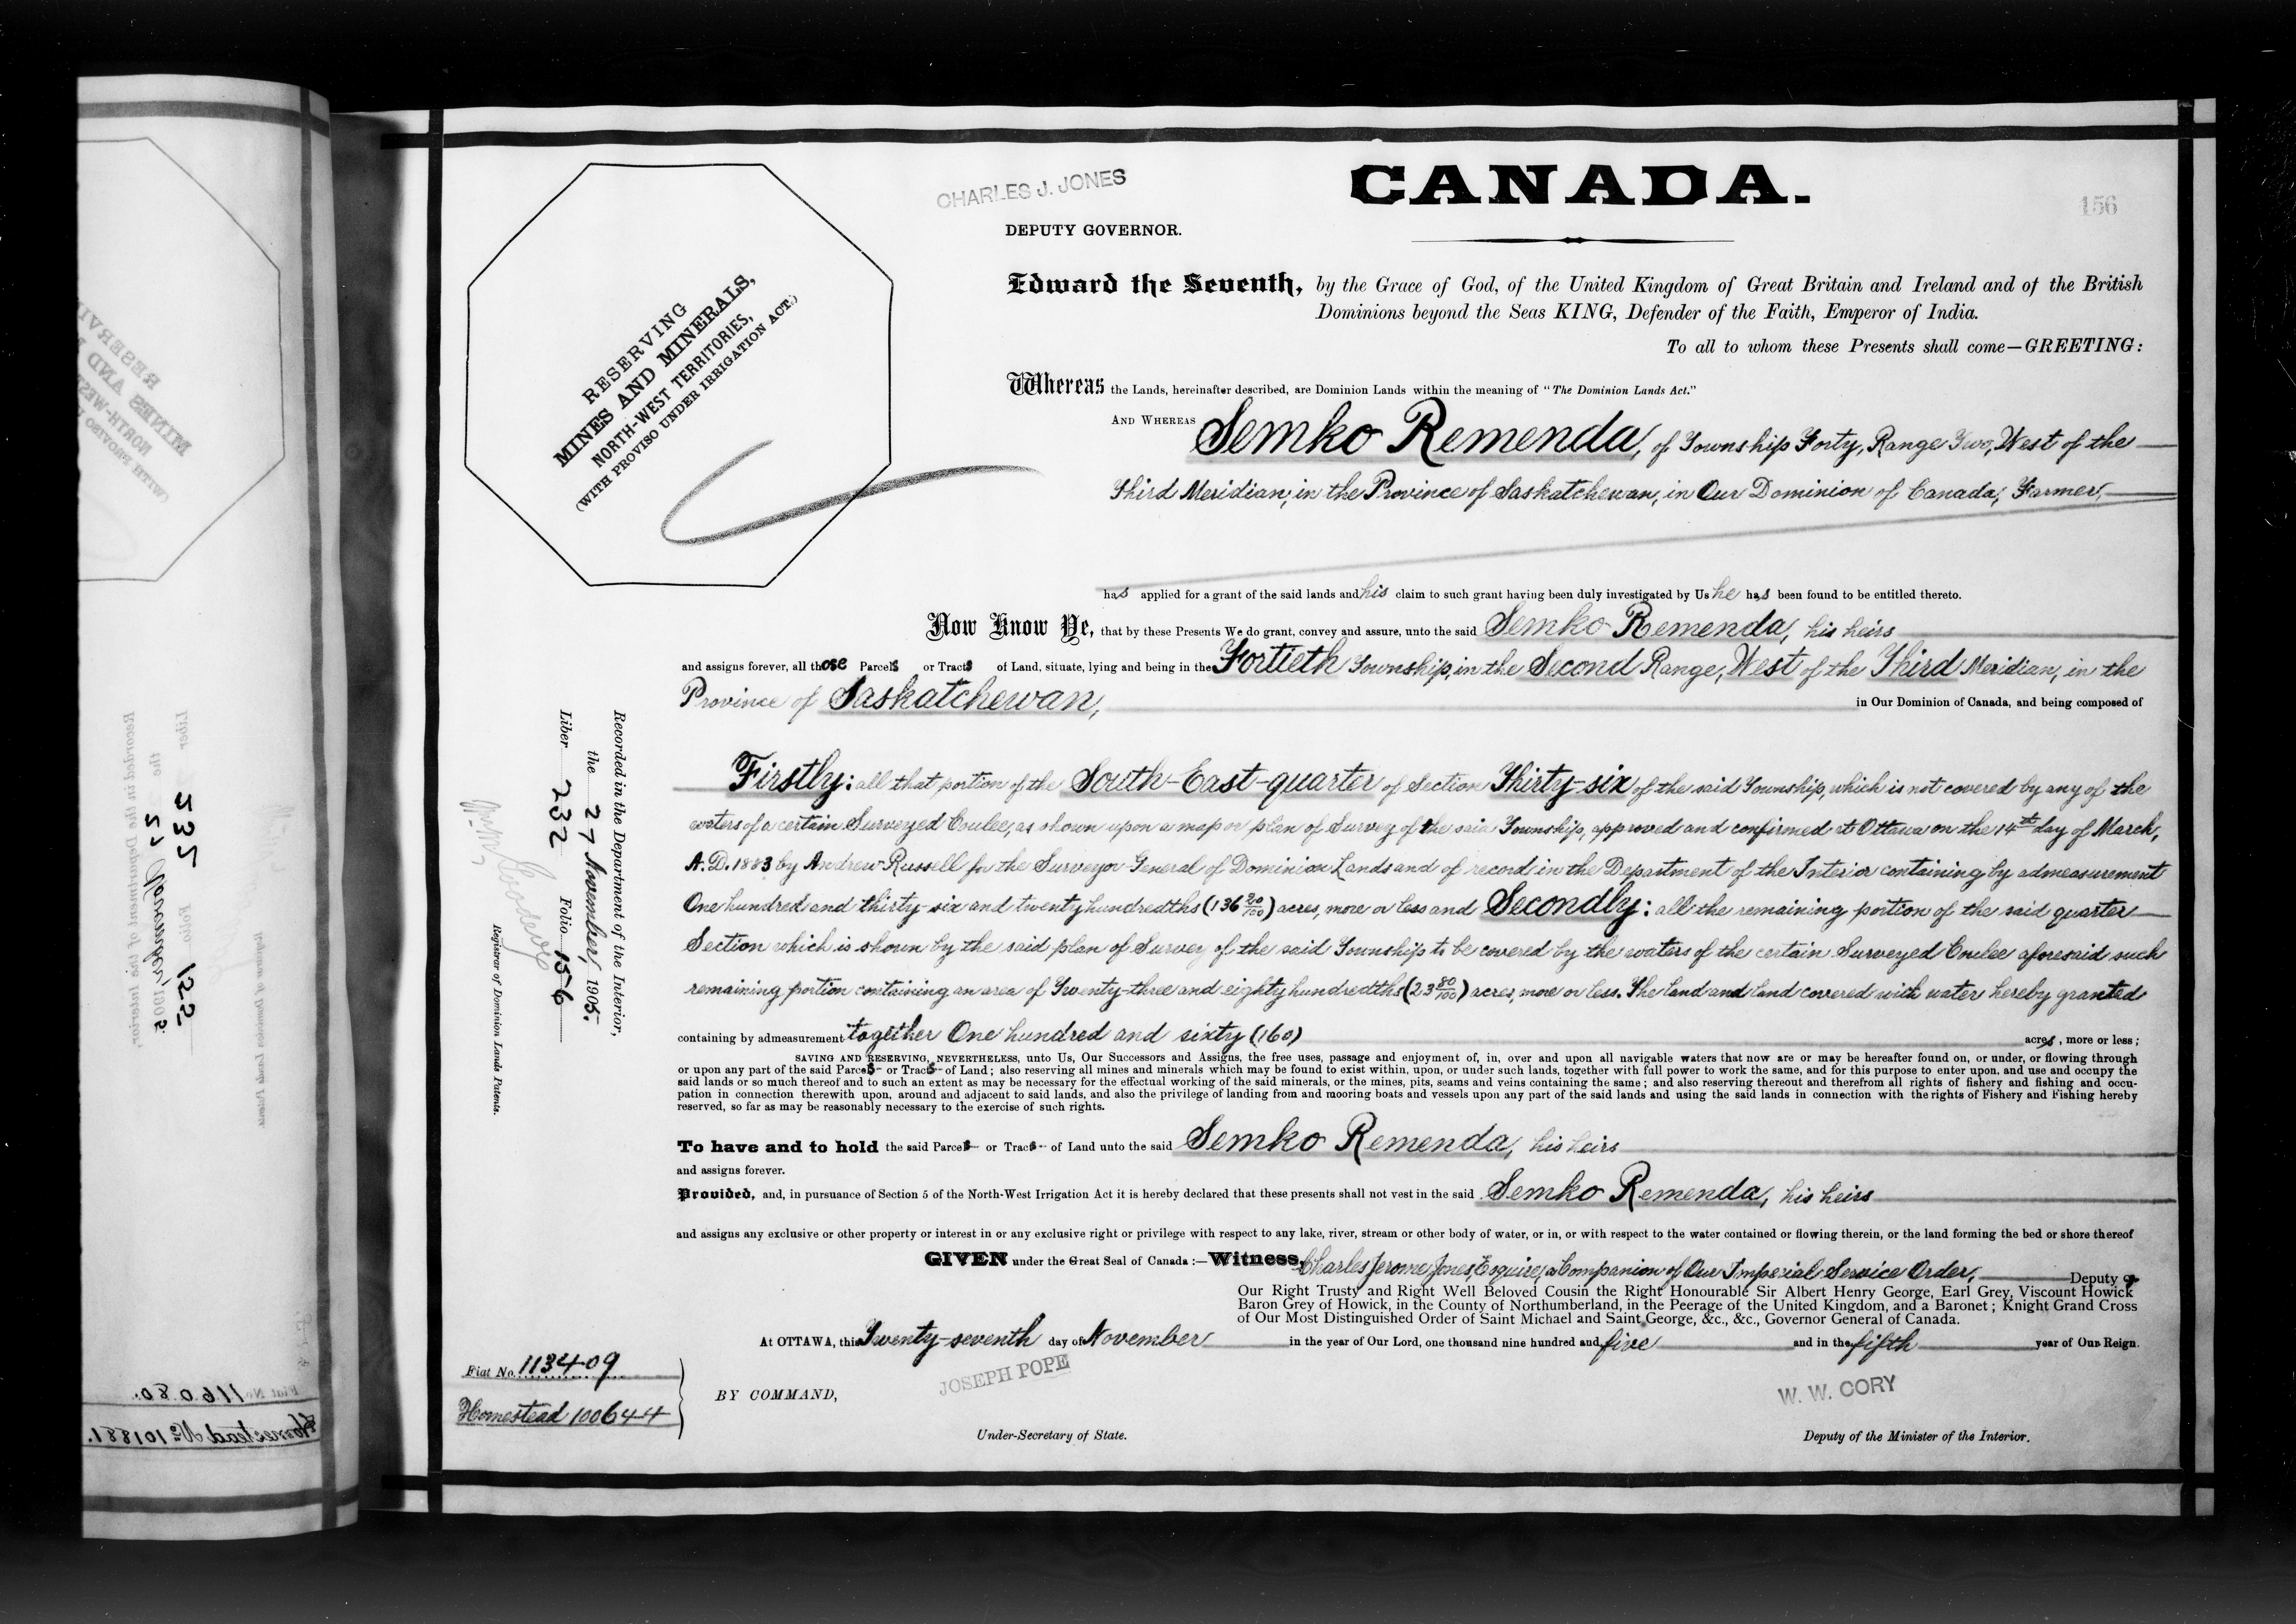 CHARLES J. JONES
CANADA.
156
DEPUTY GOVERNOR.
RESERVING
MINES AND MINERALS,
NORTH-WEST TERRITORIES,
(WITH PROVISO UNDER IRRIGATION ACT.)
Edward the Seventh, by the Grace of God, of the United Kingdom of Great Britain and Ireland and of the British
Dominions beyond the Seas KING, Defender of the Faith, Emperor of India.
To all to whom these Presents shall come—GREETING:
Whereas the Lands, hereinafter described, are Dominion Lands within the meaning of "The Dominion Lands Act."
AND WHEREAS Semko Remenda, of Township Forty, Range Two, West of the
Third Meridian, in the Province of Saskatchewan, in Our Dominion of Canada, Farmer,
has applied for a grant of the said lands and his claim to such grant having been duly investigated by Us he has been found to be entitled thereto.
Now Know Ye, that by these Presents We do grant, convey and assure, unto the said Semko Remenda, his heirs
and assigns forever, all those Parcels or Tracts of Land, situate, lying and being in the Fortieth Township, in the Second Range, West of the Third Meridian, in the
Province of Saskatchewan, in Our Dominion of Canada, and being composed of
Firstly: all that portion of the South-East-quarter of Section Thirty-six of the said Township, which is not covered by any of the
waters of a certain Surveyed Coulee, as shown upon a map or plan of Survey of the said Township, approved and confirmed at Ottawa on the 14th day of March,
A.D. 1883 by Andrew Russell for the Surveyor General of Dominion Lands and of record in the Department of the Interior containing by admeasurement
One hundred and thirty-six and twenty hundredths (136 20/100) acres, more or less and Secondly: all the remaining portion of the said quarter
Section which is shown by the said plan of Survey of the said Township to be covered by the waters of the certain Surveyed Coulee aforesaid such
remaining portion containing an area of Twenty-three and eighty hundredths (23 80/100) acres, more or less. The land and land covered with water hereby granted
containing by admeasurement together One hundred and sixty (160) acres, more or less;
SAVING AND RESERVING, NEVERTHELESS, unto Us, Our Successors and Assigns, the free uses, passage and enjoyment of, in, over and upon all navigable waters that now are or may be hereafter found on, or under, or flowing through
or upon any part of the said Parcels or Tracts of Land; also reserving all mines and minerals which may be found to exist within, upon, or under such lands, together with full power to work the same, and for this purpose to enter upon, and use and occupy the
said lands or so much thereof and to such an extent as may be necessary for the effectual working of the said minerals, or the mines, pits, seams and veins containing the same; and also reserving thereout and therefrom all rights of fishery and fishing and occu-
pation in connection therewith upon, around and adjacent to said lands, and also the privilege of landing from and mooring boats and vessels upon any part of the said lands and using the said lands in connection with the rights of Fishery and Fishing hereby
reserved, so far as may be reasonably necessary to the exercise of such rights.
To have and to hold the said Parcels or Tracts of Land unto the said Semko Remenda, his heirs
and assigns forever.
Provided, and, in pursuance of Section 5 of the North-West Irrigation Act it is hereby declared that these presents shall not vest in the said Semko Remenda, his heirs
and assigns any exclusive or other property or interest in or any exclusive right or privilege with respect to any lake, river, stream or other body of water, or in, or with respect to the water contained or flowing therein, or the land forming the bed or shore thereof
GIVEN under the Great Seal of Canada:—Witness, Charles Jerome Jones, Esquire, a Companion of Our Imperial Service Order, Deputy of
Our Right Trusty and Right Well Beloved Cousin the Right Honourable Sir Albert Henry George, Earl Grey, Viscount Howick
Baron Grey of Howick, in the County of Northumberland, in the Peerage of the United Kingdom, and a Baronet; Knight Grand Cross
of Our Most Distinguished Order of Saint Michael and Saint George, &c., &c., Governor General of Canada.
At OTTAWA, this Twenty-seventh day of November in the year of Our Lord, one thousand nine hundred and five and in the fifth year of Our Reign.
Fiat No. 113409
Homestead 100644
BY COMMAND,
JOSEPH POPE
Under-Secretary of State.
W. W. CORY
Deputy of the Minister of the Interior.
Recorded in the Department of the Interior,
the 27 November, 1905.
Liber 232 Folio 156
Registrar of Dominion Lands Patents.
Recorded in the Department of the Interior,
Liber 535 Folio 122
Registrar of Dominion Lands Patents.
Fiat No. 116080.
Homestead No 101881.